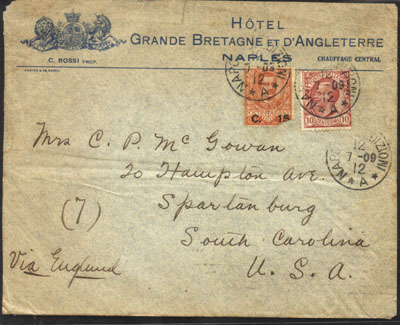 HÔTEL
GRANDE BRETAGNE ET D'ANGLETERRE
NAPLES
C. ROSSI PROP.
CHAUFFAGE CENTRAL
7-09
12
A
C. 15
-09
12
A
10
10
12
7-09
12
A
Mrs C. P. McGowan
20 Hampton Ave
Spartanburg
South Carolina
U. S. A.
(7)
Via England